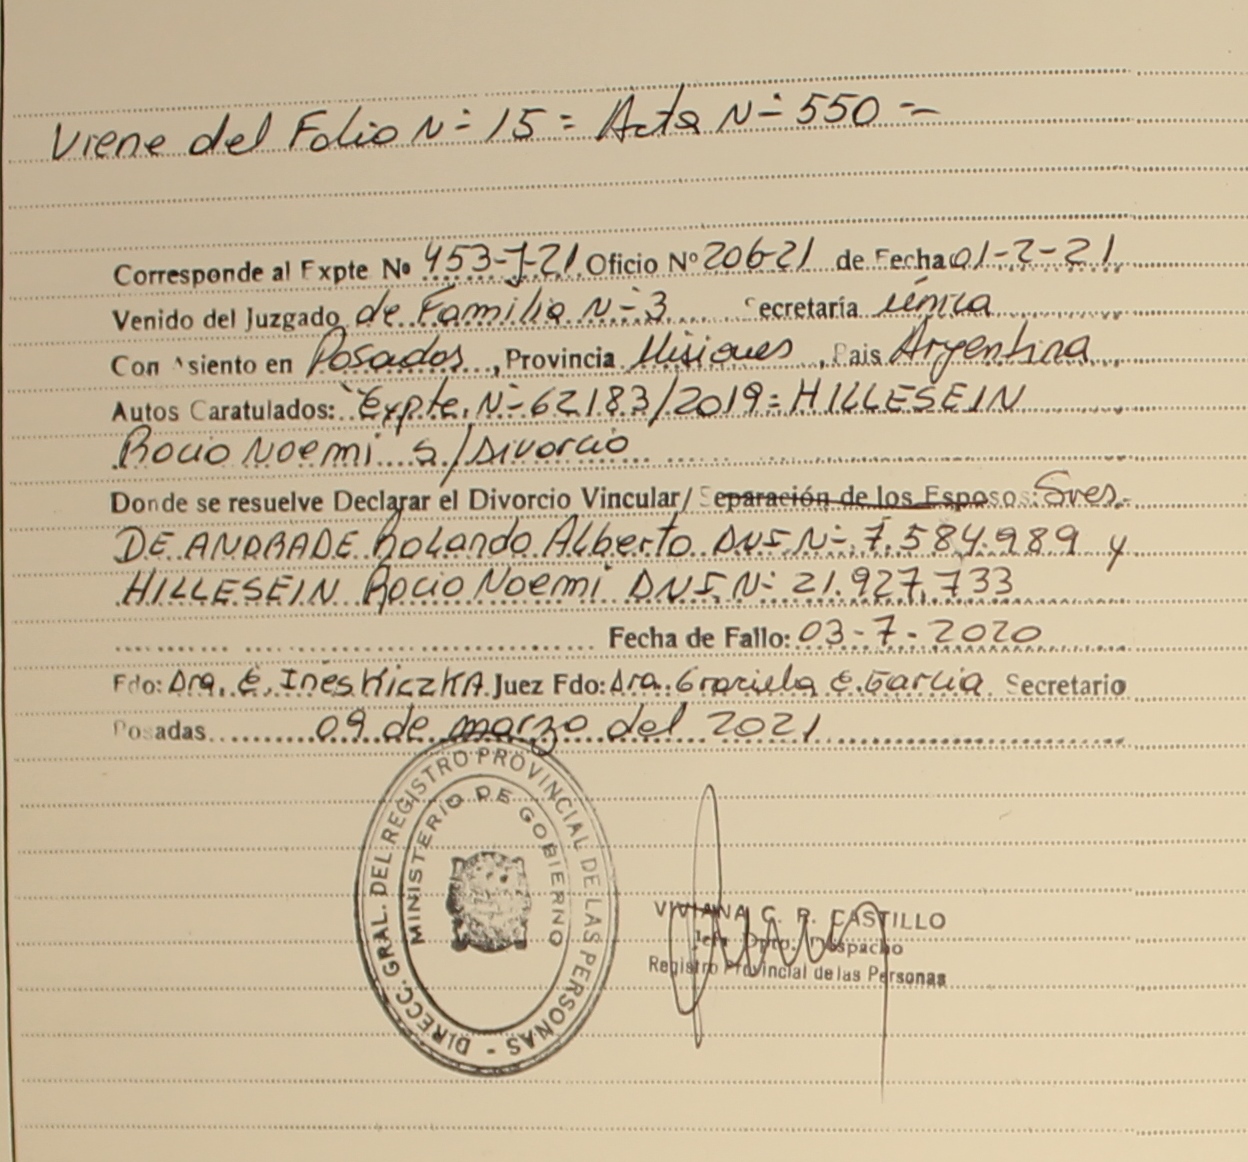 Viene del Folio Nº 15 = Acta Nº 550 =
Corresponde al Expte Nº 453-J-21 Oficio Nº 206-21 de Fecha 01-2-21
Venido del Juzgado de Familia Nº 3 Secretaría única
Con Asiento en Posadas, Provincia Misiones, Pais Argentina
Autos Caratulados: "Expte. Nº 62183/2019 = HILLESEIN
Rocio Noemi s/Divorcio
Donde se resuelve Declarar el Divorcio Vincular/ Separación de los Esposos: Sres.
DE ANDRADE Rolando Alberto DNI Nº 7.584.989 y
HILLESEIN Rocio Noemi DNI, Nº 21.927.733
Fecha de Fallo: 03-7-2020
Fdo: Dra. E. Inés Kiczka Juez Fdo: Dra. Graciela E. Garcia Secretario
Posadas 09 de marzo del 2021
DIRECC. GRAL. DEL REGISTRO PROVINCIAL DE LAS PERSONAS -
MINISTERIO DE GOBIERNO
VIVIANA C. R. CASTILLO
Jefa Dpto. Despacho
Registro Provincial de las Personas